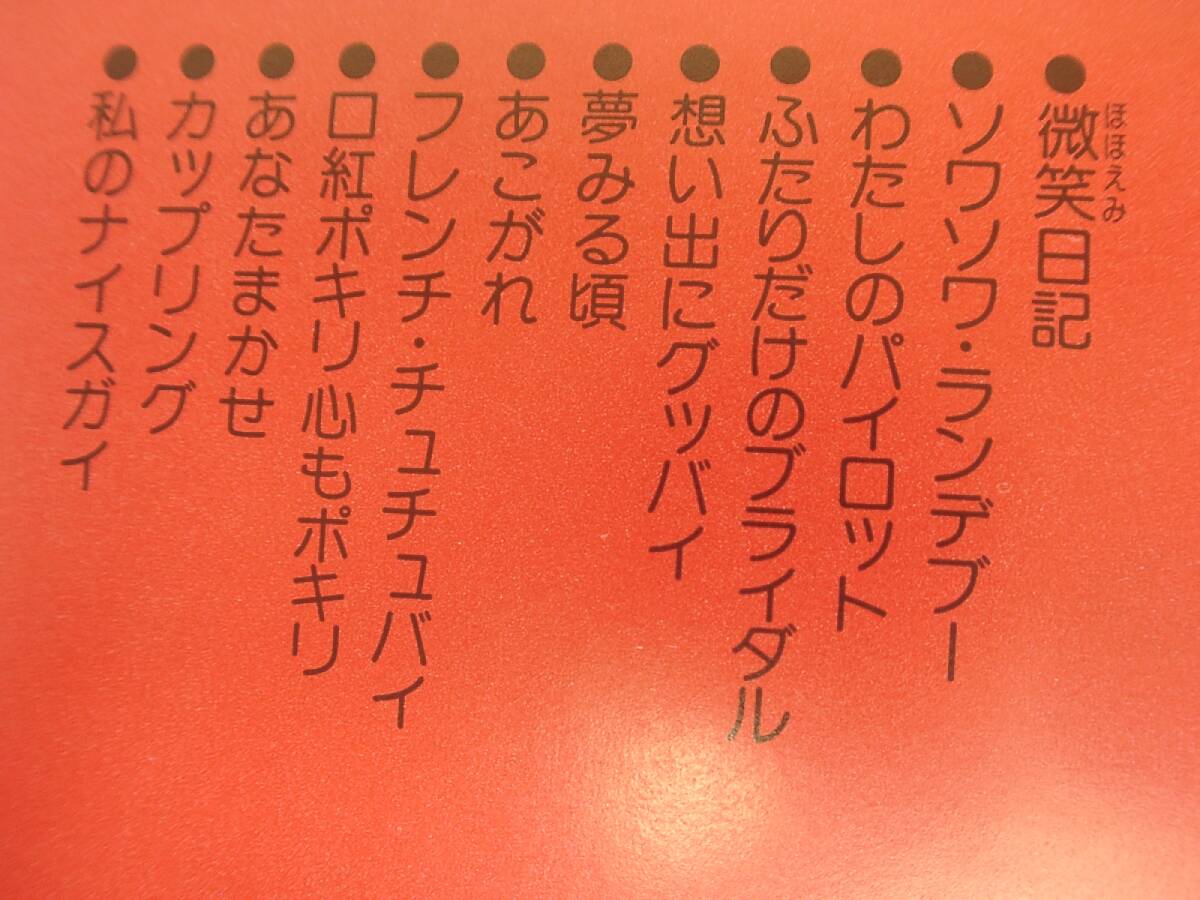 ●微笑日記
ほほえみ
●ソワソワ・ランデブー
●わたしのパイロット
●ふたりだけのブライダル
●想い出にグッバイ
●夢みる頃
●あこがれ
●フレンチ・チュチュバイ
●口紅ポキリ心もポキリ
●あなたまかせ
●カップリング
●私のナイスガイ